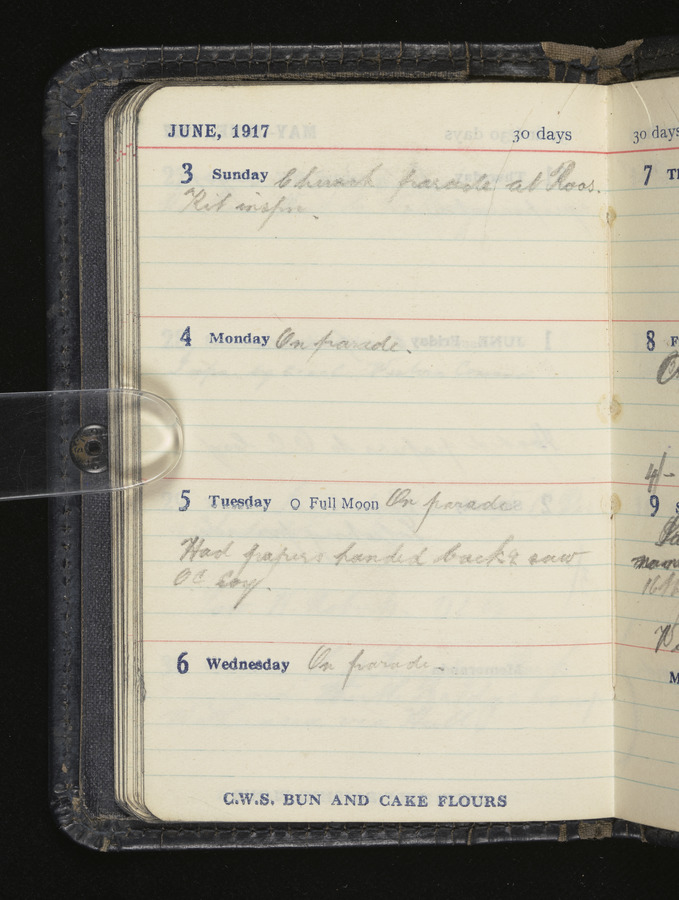 JUNE, 1917 30 days
3 Sunday Church parade at Roos.
Kit inspn.
4 Monday On parade.
5 Tuesday O Full Moon On parade
Had papers handed back & saw
OC Coy.
6 Wednesday On parade.
C.W.S. BUN AND CAKE FLOURS
30 days
7
8
4/-
9